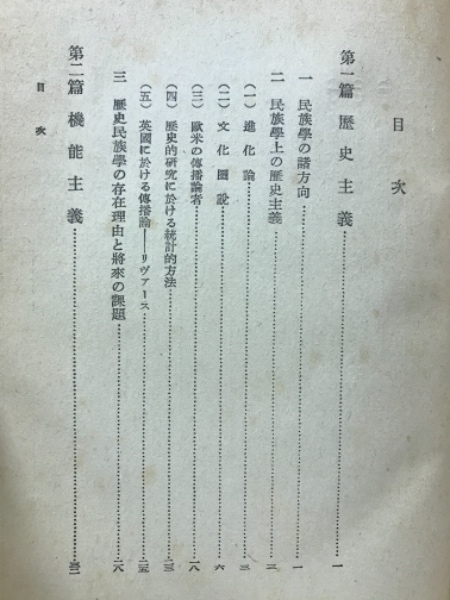 目次
第一篇 歷史主義……一
一 民族學の諸方向……一
二 民族學上の歷史主義……二
(一) 進化論……三
(二) 文化圈說……六
(三) 歐米の傳播論者……一八
(四) 歷史的研究に於ける統計的方法……二三
(五) 英國に於ける傳播論――リヴァース……二五
三 歷史民族學の存在理由と將來の課題……二八
第二篇 機能主義……
目次